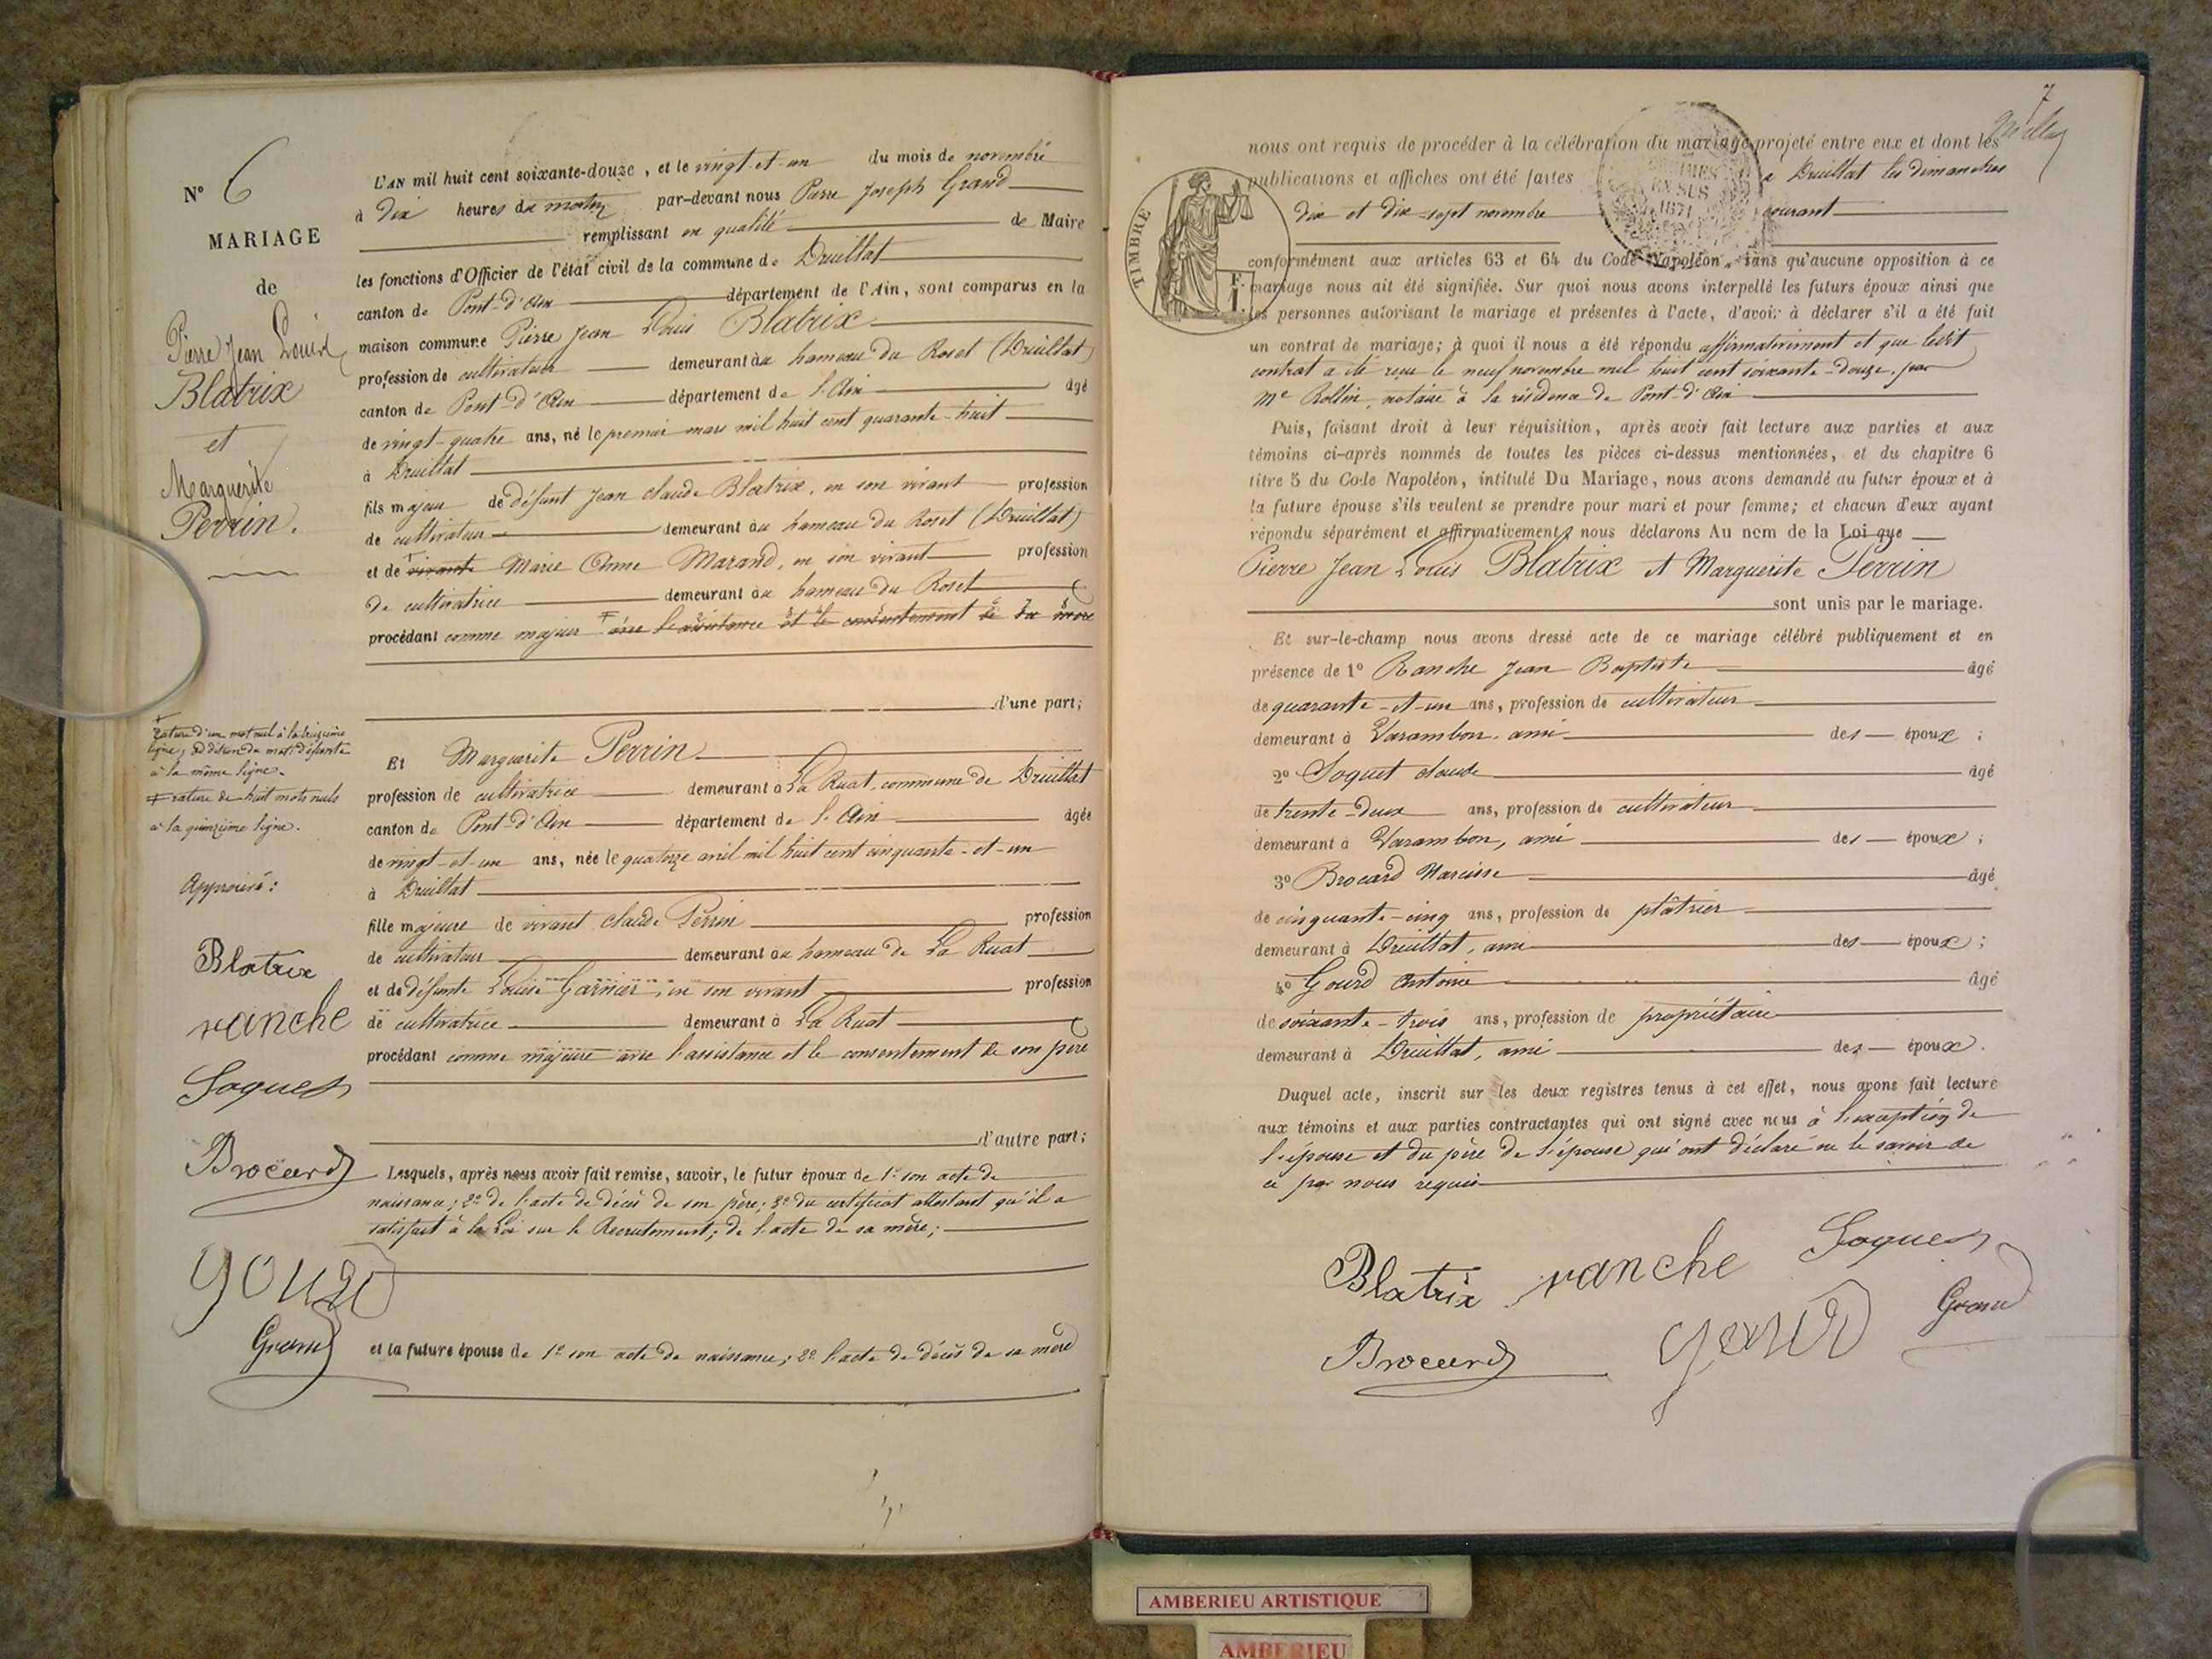 N° 6
MARIAGE
de
Pierre Jean Louis
Blatrix
et
Marguerite
Perrin.
L'AN mil huit cent soixante-douze, et le vingt-et-un du mois de novembre
à dix heures du matin par-devant nous Pierre Joseph Grand
remplissant en qualité de Maire
les fonctions d'Officier de l'état civil de la commune de Druillat
canton de Pont-d'Ain département de l'Ain, sont comparus en la
maison commune Pierre Jean Louis Blatrix
profession de cultivateur demeurant au hameau du Roset (Druillat)
canton de Pont-d'Ain département de l'Ain âgé
de vingt-quatre ans, né le premier mars mil huit cent quarante-huit
à Druillat
fils majeur de défunt Jean Claude Blatrix, en son vivant profession
de cultivateur demeurant au hameau du Roset (Druillat)
et de vivante Marie Anne Marand, en son vivant profession
de cultivatrice demeurant au hameau du Roset
procédant comme majeur avec l'assistance et le consentement de sa mère
d'une part;
rature d'un mot nul à la treizième
ligne, addition du mot défunte
à la même ligne.
rature de huit mots nuls
à la quinzième ligne.
Approuvé:
Blatrix
ranche
Soquet
Brocard
gourd
Grand
Et Marguerite Perrin
profession de cultivatrice demeurant à La Ruat, commune de Druillat
canton de Pont-d'Ain département de l'Ain âgée
de vingt-et-un ans, née le quatorze avril mil huit cent cinquante-et-un
à Druillat
fille majeure de vivant Claude Perrin profession
de cultivateur demeurant au hameau de La Ruat
et de défunte Louise Garnier, en son vivant profession
de cultivatrice demeurant à La Ruat
procédant comme majeure avec l'assistance et le consentement de son père
d'autre part;
Lesquels, après nous avoir fait remise, savoir, le futur époux de 1° son acte de
naissance; 2° de l'acte de décès de son père; 3° du certificat attestant qu'il a
satisfait à la Loi sur le Recrutement; de l'acte de sa mère;
et la future épouse de 1° son acte de naissance; 2° l'acte de décès de sa mère
7
nous ont requis de procéder à la célébration du mariage projeté entre eux et dont les
publications et affiches ont été faites à Druillat les dimanches
dix et dix-sept novembre courant
TIMBRE
EN SUS
1871
conformément aux articles 63 et 64 du Code Napoléon, sans qu'aucune opposition à ce
mariage nous ait été signifiée. Sur quoi nous avons interpellé les futurs époux ainsi que
les personnes autorisant le mariage et présentes à l'acte, d'avoir à déclarer s'il a été fait
un contrat de mariage; à quoi il nous a été répondu affirmativement et que ledit
contrat a été reçu le neuf novembre mil huit cent soixante-douze, par
Me Rollin, notaire à la résidence de Pont-d'Ain
Puis, faisant droit à leur réquisition, après avoir fait lecture aux parties et aux
témoins ci-après nommés de toutes les pièces ci-dessus mentionnées, et du chapitre 6
titre 5 du Code Napoléon, intitulé Du Mariage, nous avons demandé au futur époux et à
la future épouse s'ils veulent se prendre pour mari et pour femme; et chacun d'eux ayant
répondu séparément et affirmativement, nous déclarons Au nom de la Loi que
Pierre Jean Louis Blatrix et Marguerite Perrin
sont unis par le mariage.
Et sur-le-champ nous avons dressé acte de ce mariage célébré publiquement et en
présence de 1° Ranche Jean Baptiste âgé
de quarante-et-un ans, profession de cultivateur
demeurant à Varambon, ami des époux;
2° Soquet Claude âgé
de trente-deux ans, profession de cultivateur
demeurant à Varambon, ami des époux;
3° Brocard Narcisse âgé
de cinquante-cinq ans, profession de plâtrier
demeurant à Druillat, ami des époux;
4° Gourd Antoine âgé
de soixante-trois ans, profession de propriétaire
demeurant à Druillat, ami des époux.
Duquel acte, inscrit sur les deux registres tenus à cet effet, nous avons fait lecture
aux témoins et aux parties contractantes qui ont signé avec nous à l'exception de
l'épouse et du père de l'épouse qui ont déclaré ne le savoir de
ce par nous requis
Blatrix ranche Soquet
Brocard gourd Grand
AMBERIEU ARTISTIQUE
AMBERIEU